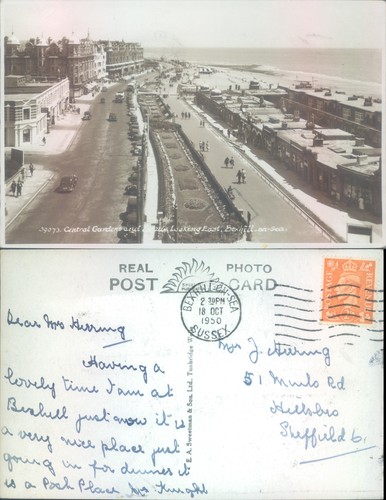 39073. Central Gardens and Parade Looking East, Bexhill-on-Sea.
REAL PHOTO
POST CARD
BEXHILL-ON-SEA
2 30PM
18 OCT
1950
SUSSEX
POSTAGE REVENUE
E. A. Sweetman & Son, Ltd. Tunbridge W
Dear Mrs Herring
Having a
lovely time I am at
Bexhill just now it is
a very nice place just
going in for dinner it
is a Posh Place, Mrs Knight
Mrs J. Herring
51 Rd
Hillsbro
Sheffield 6.